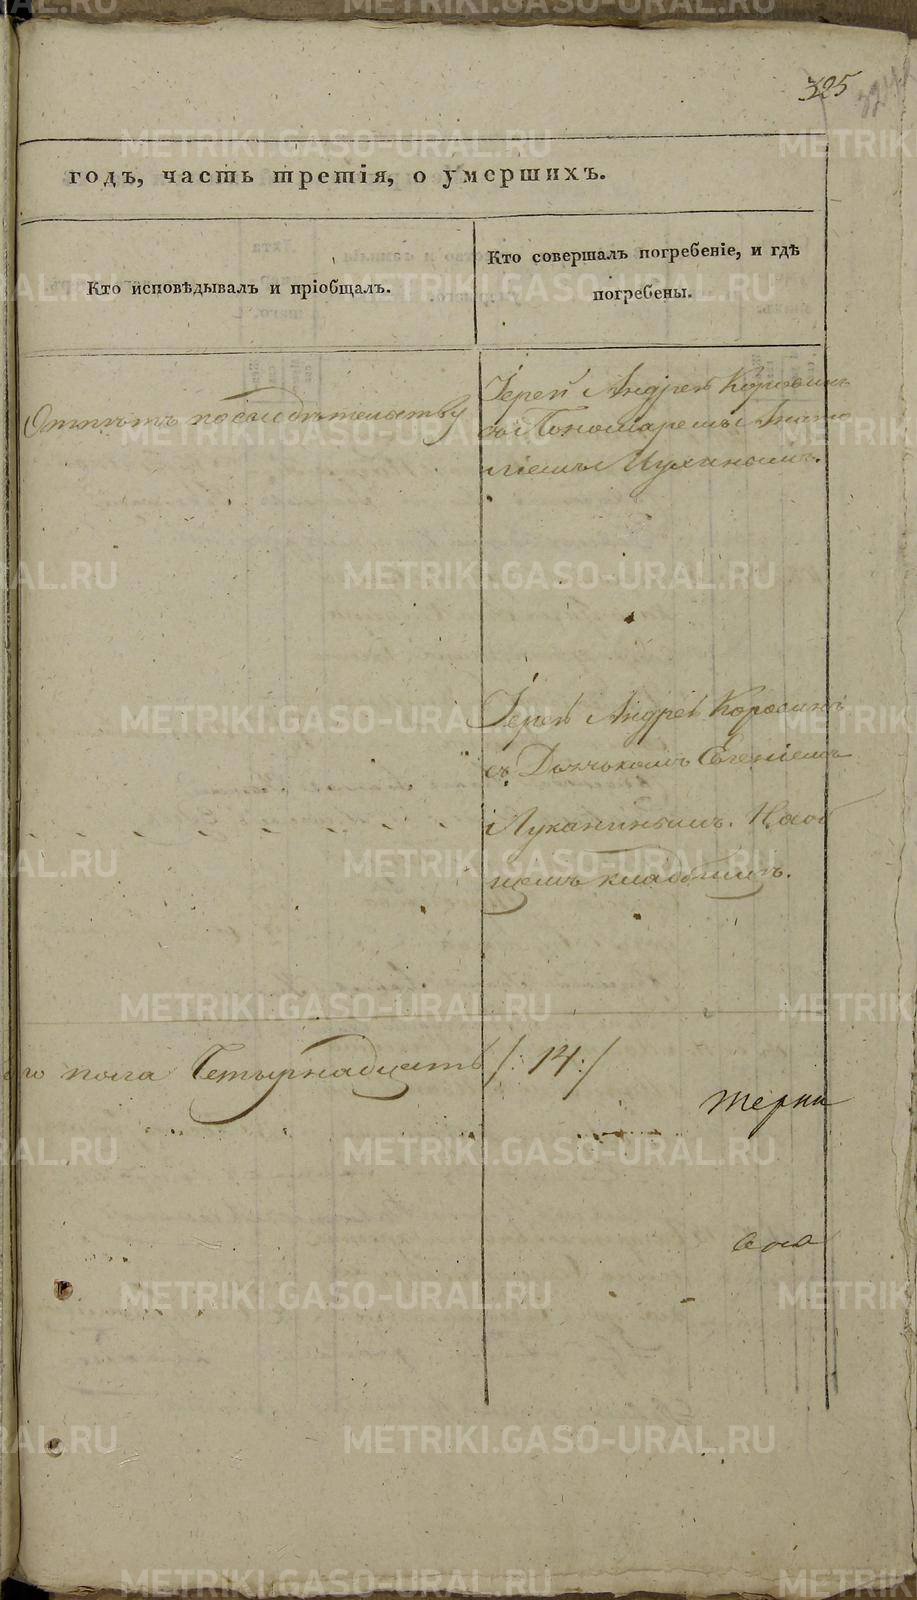 325
годъ, часть третія, о умершихъ.
Кто исповѣдывалъ и пріобщалъ.
Кто совершалъ погребеніе, и гдѣ
погребены.
Отпѣтъ по свидѣтельству
Іерей Андрей Коровинъ
съ Пономаремъ
Іерей Андрей Коровинъ
съ Дьячкомъ Евгеніемъ
Луканинымъ. На об
щемъ кладбищѣ.
го пола Четырнадцать /: 14 :/
METRIKI.GASO-URAL.RU